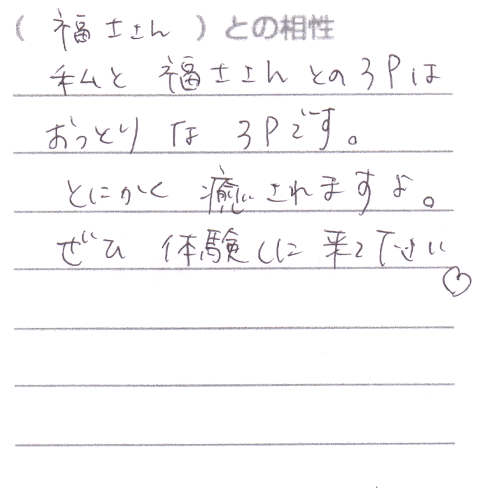 ( 福士さん )との相性
私と福士さんとの3Pは
おっとりな3Pです。
とにかく癒されますよ。
ぜひ体験しに来て下さい♡